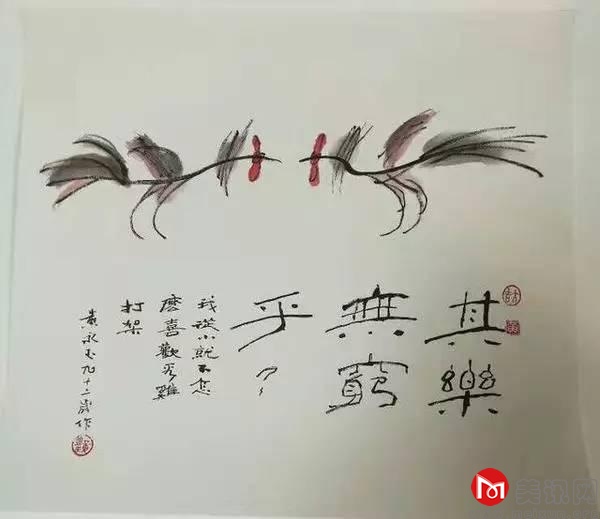 其樂
無窮
乎??
我從小就不怎
麼喜歡看雞
打架
黃永玉九十二歲作
美讯网